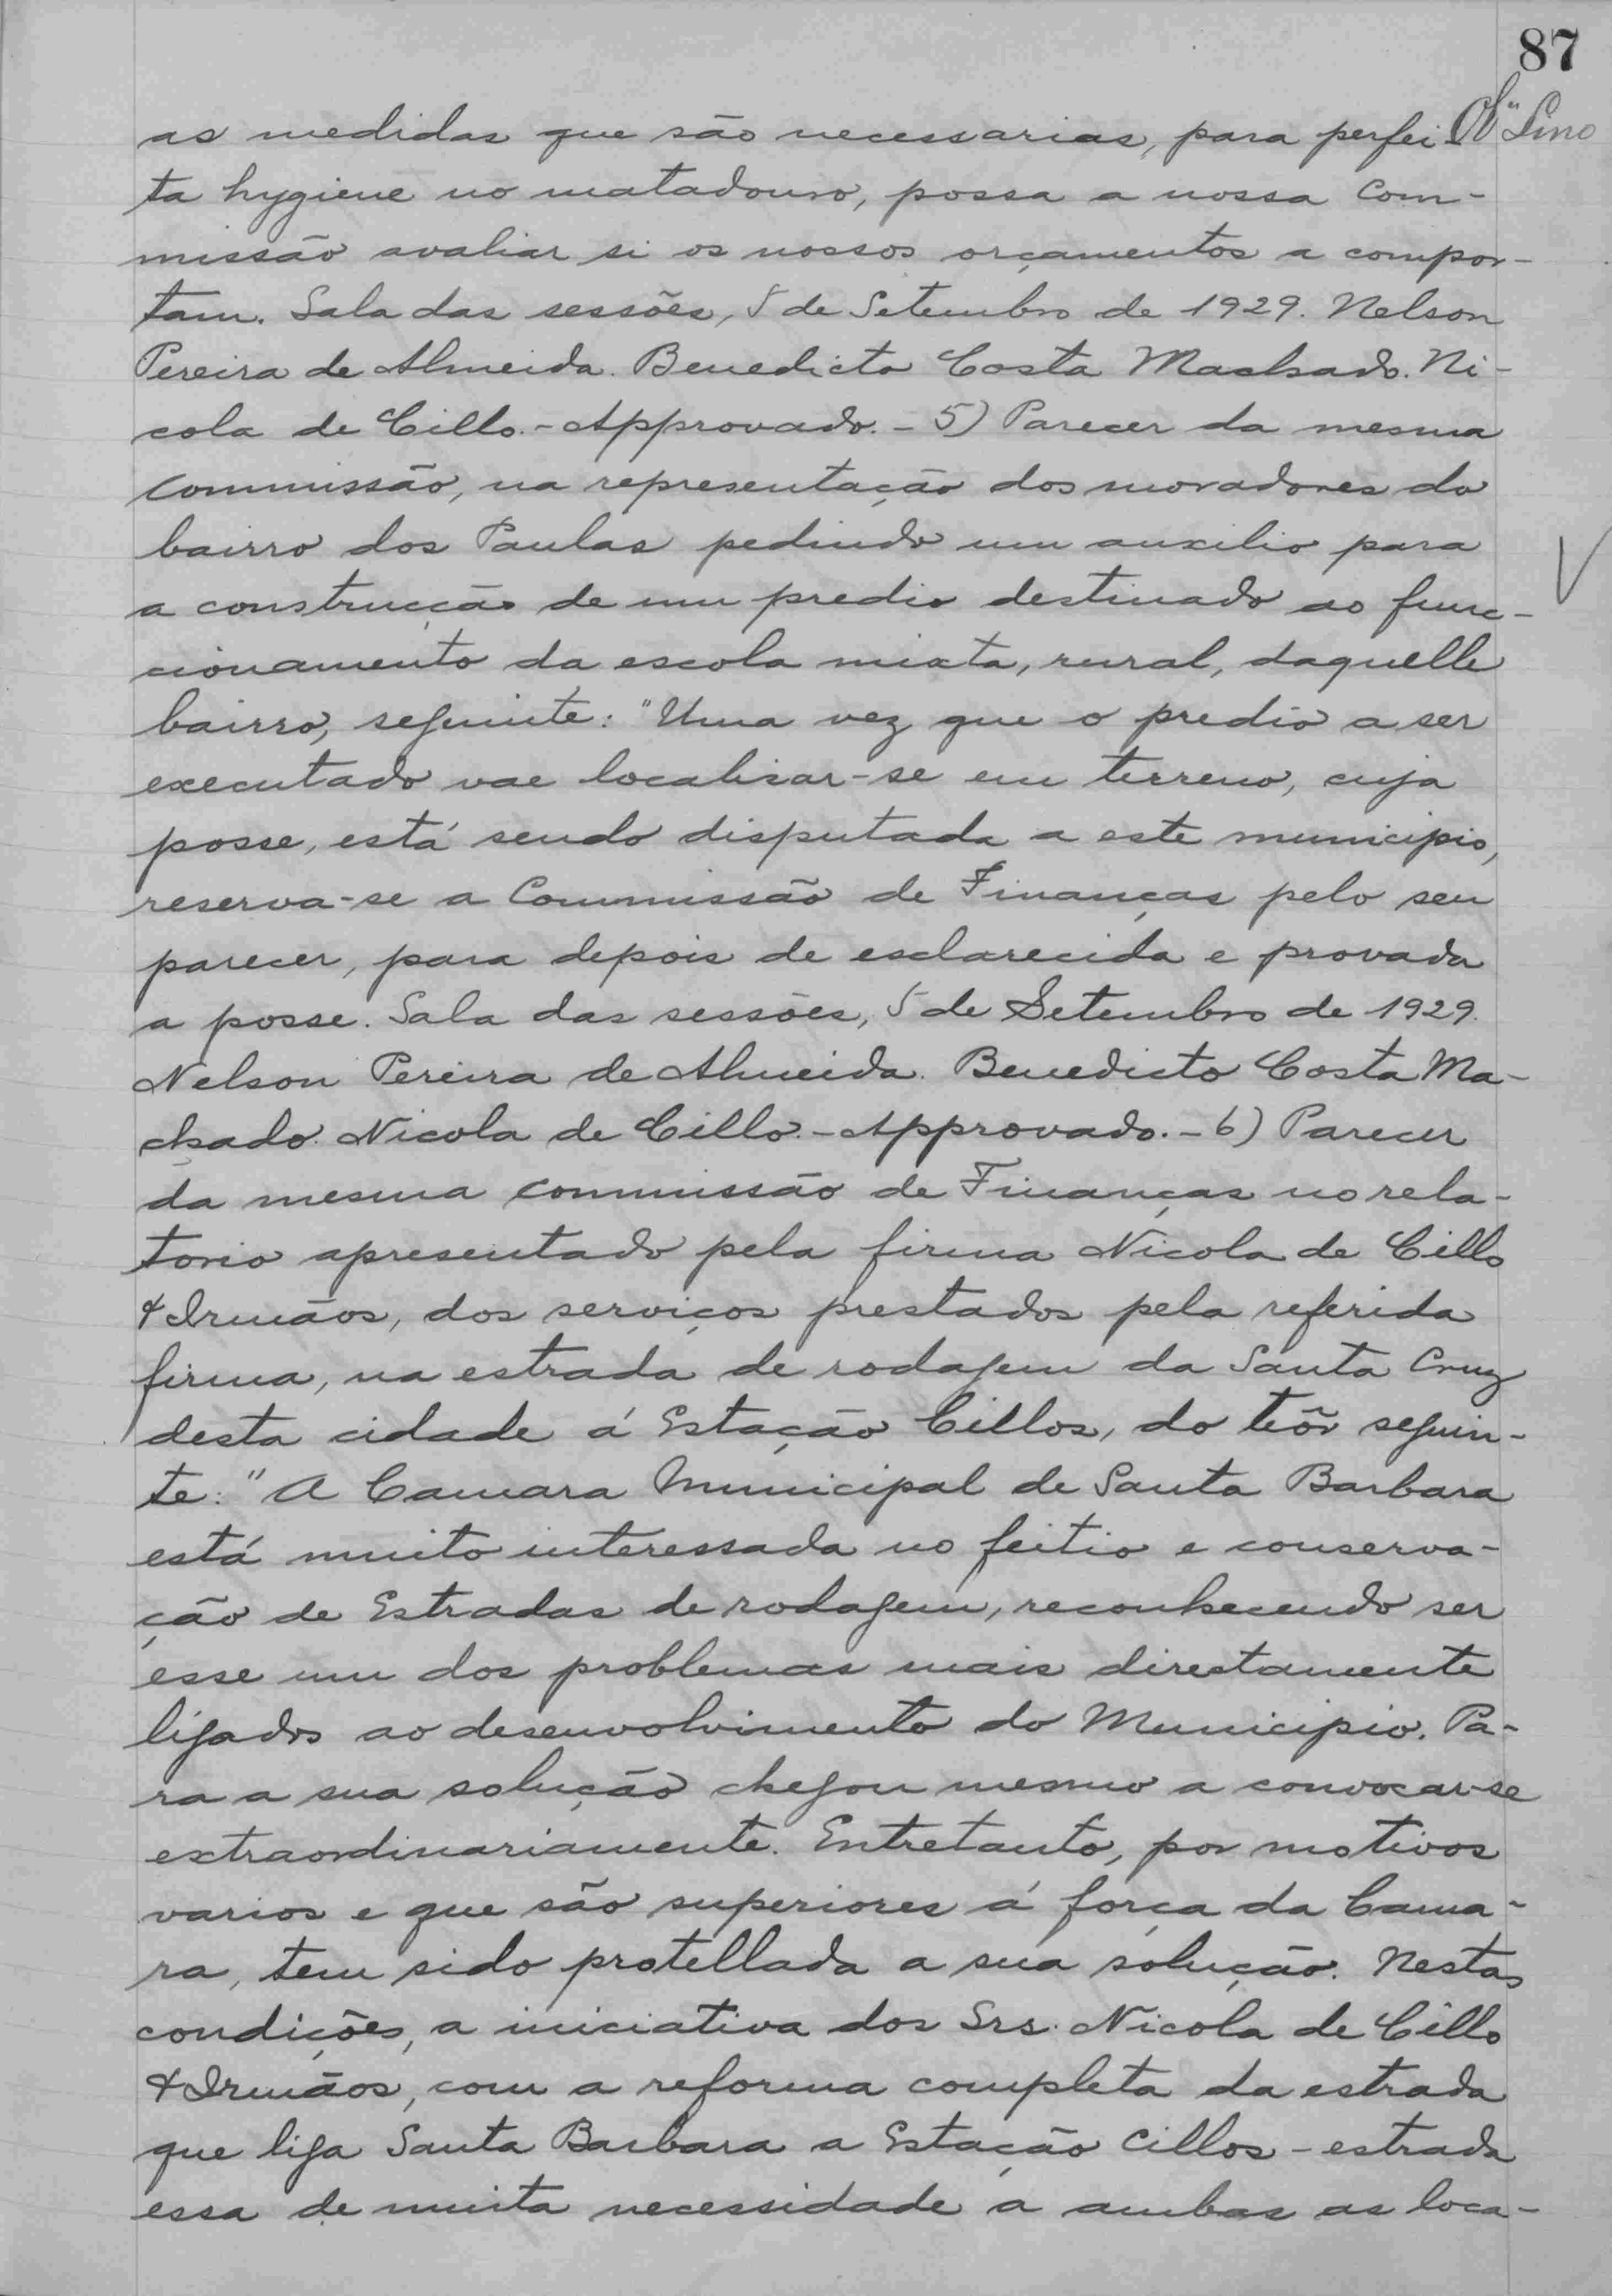 87
Lino
as medidas que são necessarias, para perfei-
ta hygiene no matadouro, possa a nossa Com-
missão avaliar si os nossos orçamentos a compor-
tam. Sala das sessões, 5 de Setembro de 1929. Nelson
Pereira de Almeida. Benedicto Costa Machado. Ni-
cola de Cillo. - Approvado. - 5) Parecer da mesma
commissão, na representação dos moradores do
bairro dos Paulas pedindo um auxilio para
a construcção de um predio destinado ao func-
cionamento da escola mixta, rural, daquelle
bairro, seguinte: "Uma vez que o predio a ser
executado vae localisar-se em terreno, cuja
posse, está sendo disputada a este municipio,
reserva-se a Commissão de Finanças pelo seu
parecer, para depois de esclarecida e provada
a posse. Sala das sessões, 5 de Setembro de 1929.
Nelson Pereira de Almeida. Benedicto Costa Ma-
chado. Nicola de Cillo. - Approvado. - 6) Parecer
da mesma commissão de Finanças no rela-
torio apresentado pela firma Nicola de Cillo
& Irmãos, dos serviços prestados pela referida
firma, na estrada de rodagem da Santa Cruz
desta cidade á Estação Cillos, do teôr seguin-
te: "A Camara Municipal de Santa Barbara
está muito interessada no feitio e conserva-
ção de Estradas de rodagem, reconhecendo ser
esse um dos problemas mais directamente
ligados ao desenvolvimento do Municipio. Pa-
ra a sua solução chegou mesmo a convocar-se
extraordinariamente. Entretanto, por motivos
varios e que são superiores á força da Cama-
ra, tem sido protellada a sua solução. Nestas
condições, a iniciativa dos Srs. Nicola de Cillo
& Irmãos, com a reforma completa da estrada
que liga Santa Barbara a Estação Cillos - estrada
essa de muita necessidade a ambas as loca-